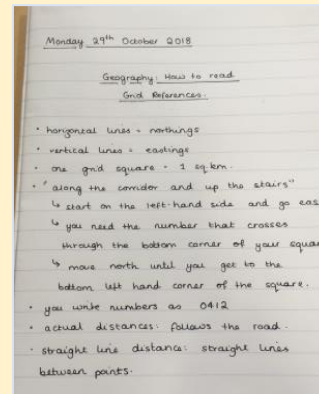 Monday 29th October 2018
Geography: How to read
Grid References.
• horizontal lines = northings
• vertical lines = eastings
• one grid square = 1 sq. km.
• "along the corridor and up the stairs"
↳ start on the left-hand side and go eas
↳ you need the number that crosses
through the bottom corner of your squa
↳ move north until you get to the
bottom left hand corner of the square.
• you write numbers as 0412
• actual distances: follows the road.
• straight line distance: straight lines
between points.